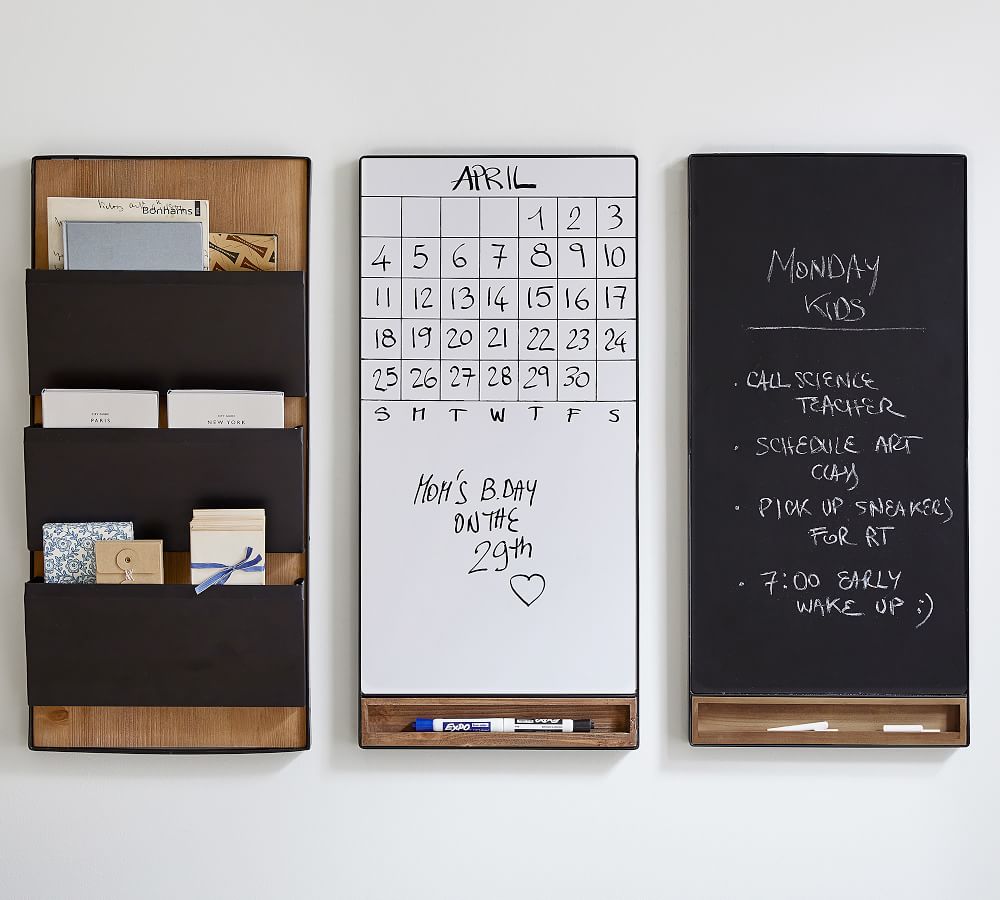 Bonhams
CITY GUIDE
PARIS
CITY GUIDE
NEW YORK
APRIL
1 2 3
4 5 6 7 8 9 10
11 12 13 14 15 16 17
18 19 20 21 22 23 24
25 26 27 28 29 30
S M T W T F S
MOM'S B.DAY
ON THE
29th
EXPO
EXPO
MONDAY
KIDS
• CALL SCIENCE
TEACHER
• SCHEDULE ART
CLAY
• PICK UP SNEAKERS
FOR RT
• 7:00 EARLY
WAKE UP :)